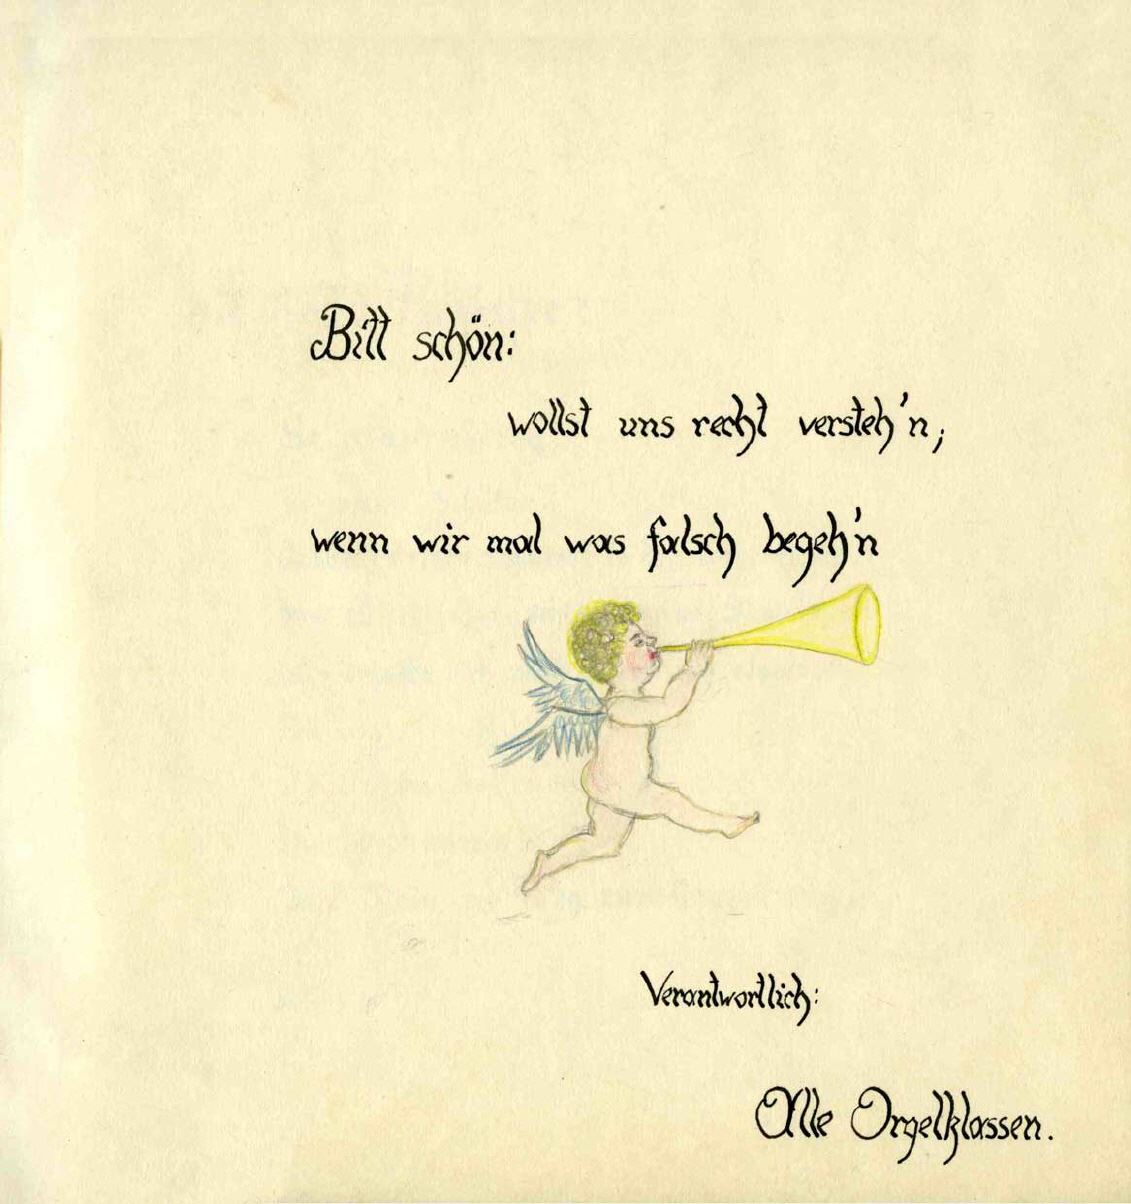 Bitt schön:
wollst uns recht versteh'n;
wenn wir mal was falsch begeh'n
Verantwortlich:
Alle Orgelklassen.